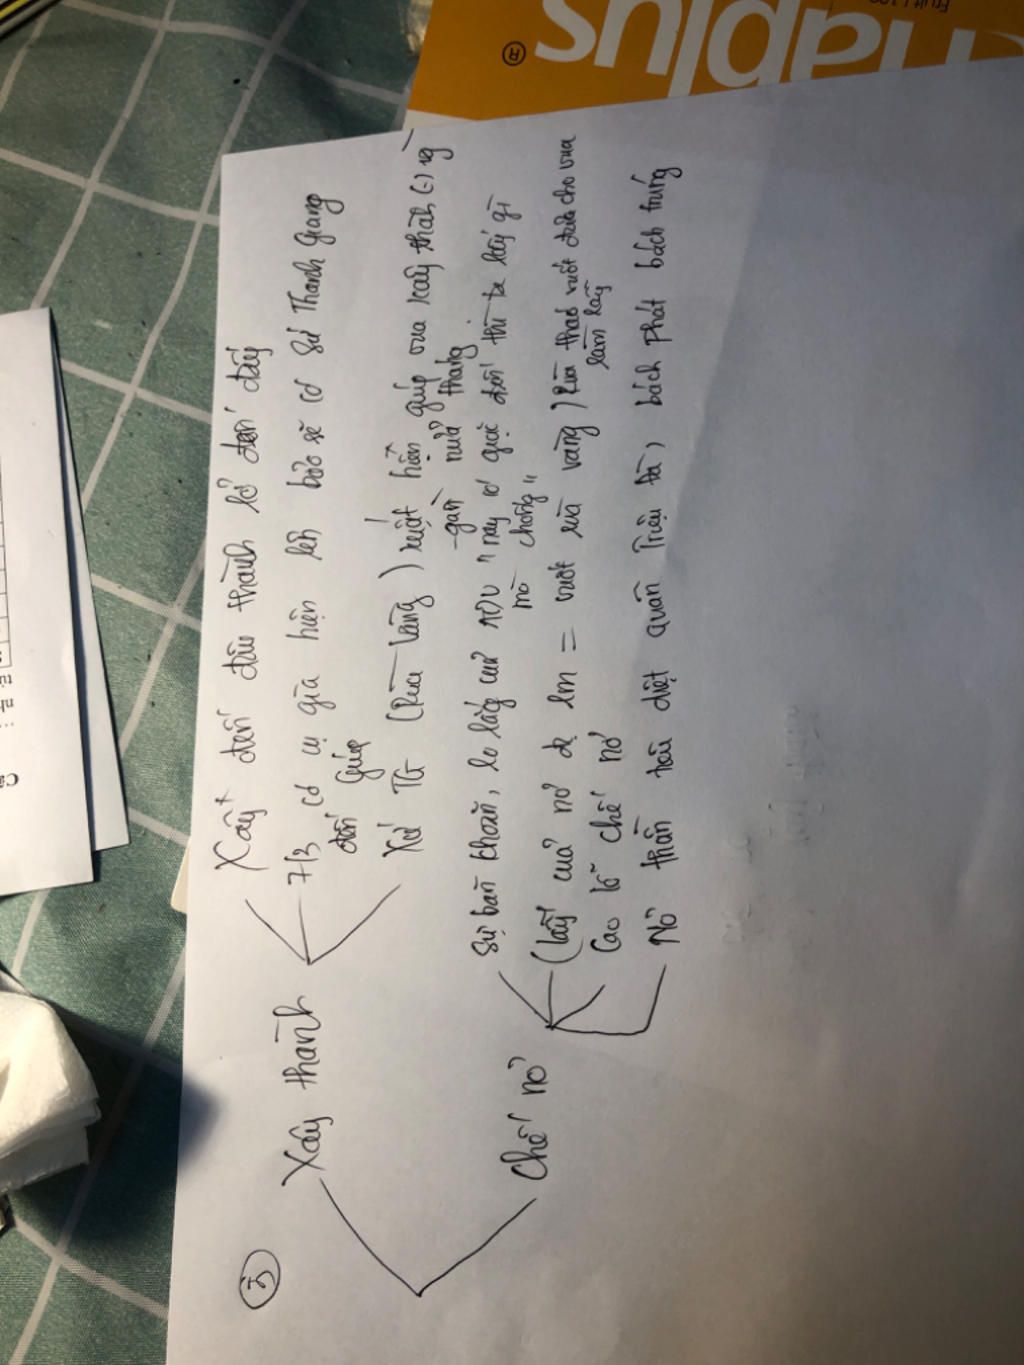 ③
Xây thành
Xây đến đâu thành lở đến đấy
7/3 có cụ già hiện lên bảo sẽ có Sứ Thanh Giang
đến giúp
Xứ TG (Rùa Vàng) xuất hiện giúp vua xây thành (-) ng
gần nửa tháng
Chế nỏ
Sự băn khoăn, lo lắng của ADV "nay có giặc đến thì ta lấy gì
mà chống"
(lẫy của nỏ dc lm = vuốt rùa vàng) Rùa tháo vuốt đưa cho vua
làm lẫy
Cao lỗ chế nỏ
Nỏ thần tiêu diệt quân Triệu Đà, bách phát bách trúng
naplus
®